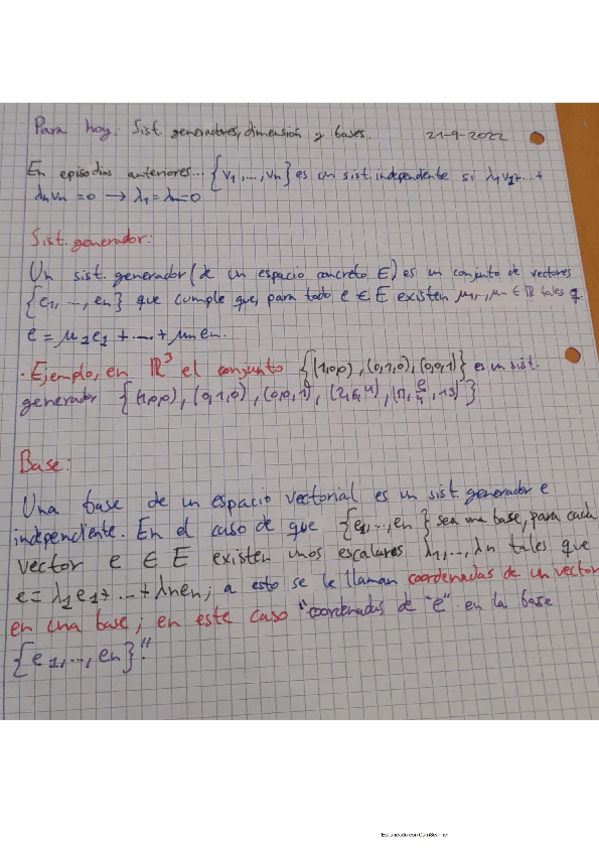 Para hoy: Sist. generadores, dimensión y bases. 21-9-2022
En episodios anteriores... {v1, ..., vn} es un sist. independiente si λ1v1+...+
λnvn = 0 → λ1 = λn = 0
Sist. generador:
Un sist. generador (de un espacio concreto E) es un conjunto de vectores
{e1, ..., en} que cumple que, para todo e ∈ E existen μ1,..,μn ∈ ℝ tales q.
e = μ1e1 + ... + μnen.
· Ejemplo, en ℝ³ el conjunto {(1,0,0), (0,1,0), (0,0,1)} es un sist.
generador {(1,0,0), (0,1,0), (0,0,1), (2,6,4), (π, e/4, 13)}
Base:
Una base de un espacio vectorial es un sist. generador e
independiente. En el caso de que {e1, .., en} sea una base, para cada
vector e ∈ E existen unos escalares λ1, .., λn tales que
e = λ1e1 + .. + λnen; a esto se le llaman coordenadas de un vector
en una base; en este caso "coordenadas de "e" en la base
{e1, .., en}"
Escaneado con CamScanner